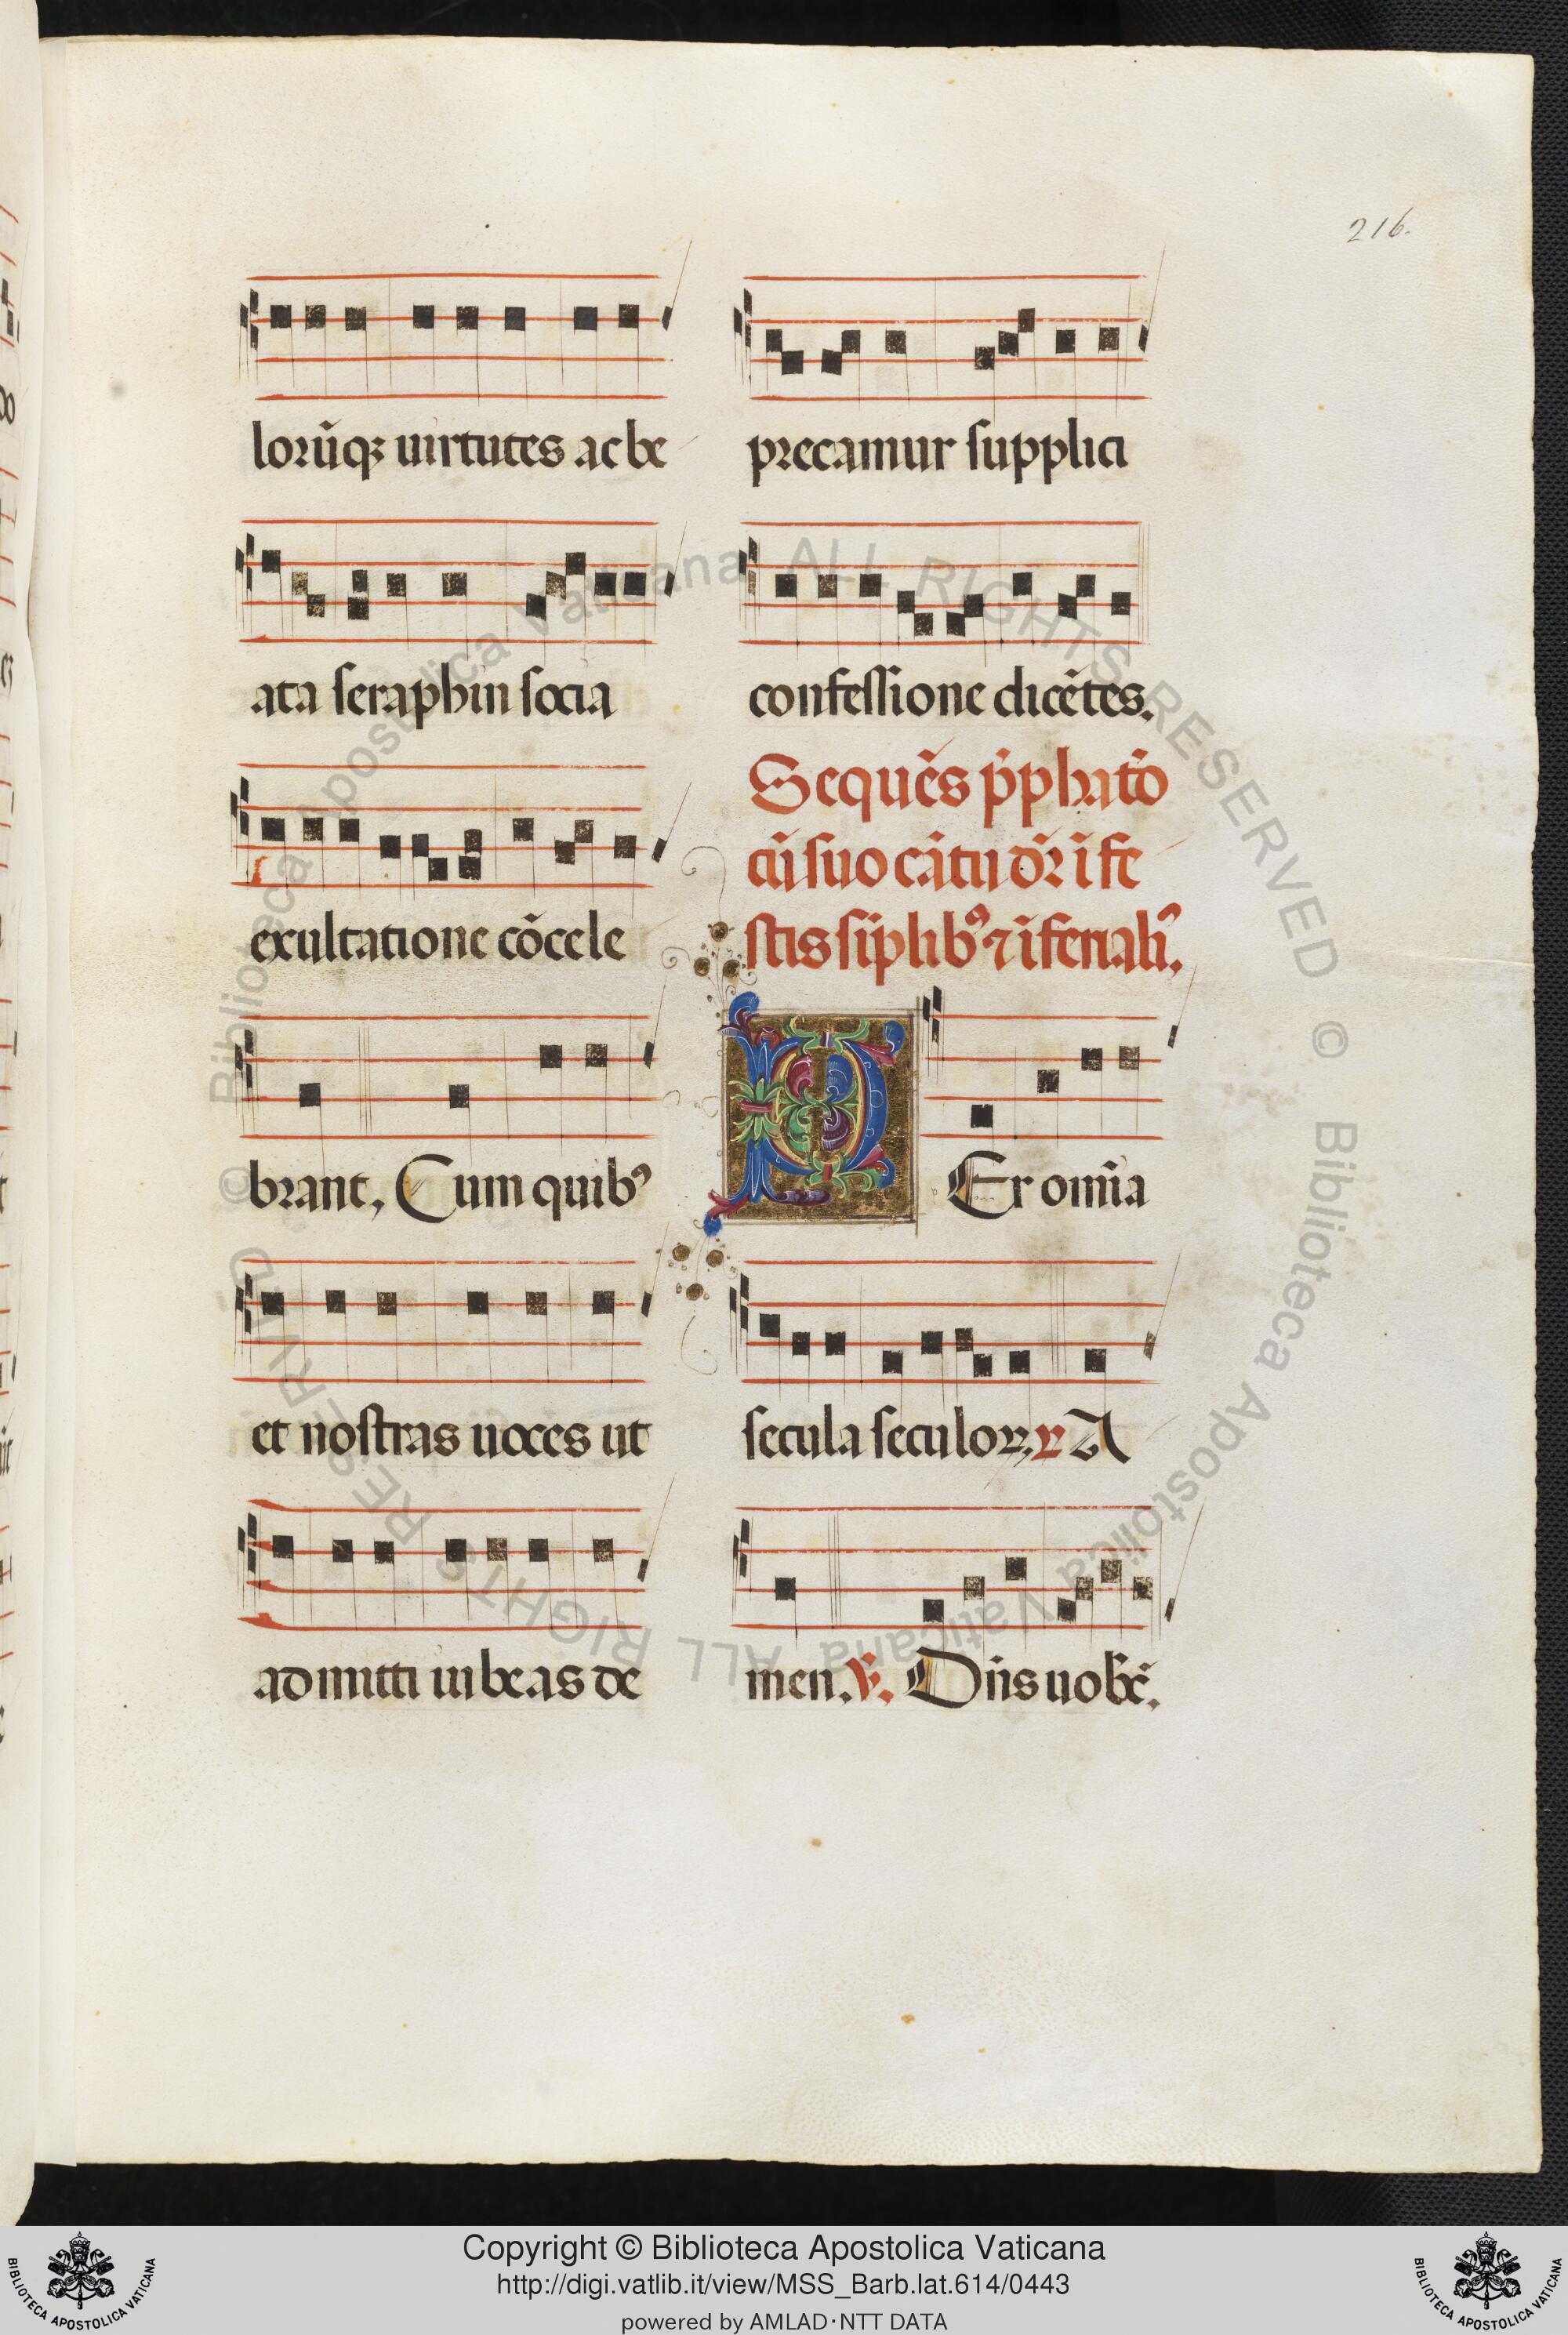 216.
lorūqꝫ uirtutes ac be
ata seraphin socia
exultatione cōcele
brant, Cum quibꝰ
et nostras uoces ut
admitti iubeas de
precamur supplici
confessione dicētes.
Sequēs p̄phato
cū suo cātu dr̄ ī fe
stis sīplibꝰ ⁊ ī ferialī.
P Er omīa
secula seculoꝝ, ꝶ A
men. ℣. Dn̄s uobc̄.
© Biblioteca Apostolica Vaticana ALL RIGHTS RESERVED © Biblioteca Apostolica Vaticana ALL RIGHTS RESERVED
Copyright © Biblioteca Apostolica Vaticana
http://digi.vatlib.it/view/MSS_Barb.lat.614/0443
powered by AMLAD·NTT DATA
BIBLIOTECA APOSTOLICA VATICANA
BIBLIOTECA APOSTOLICA VATICANA